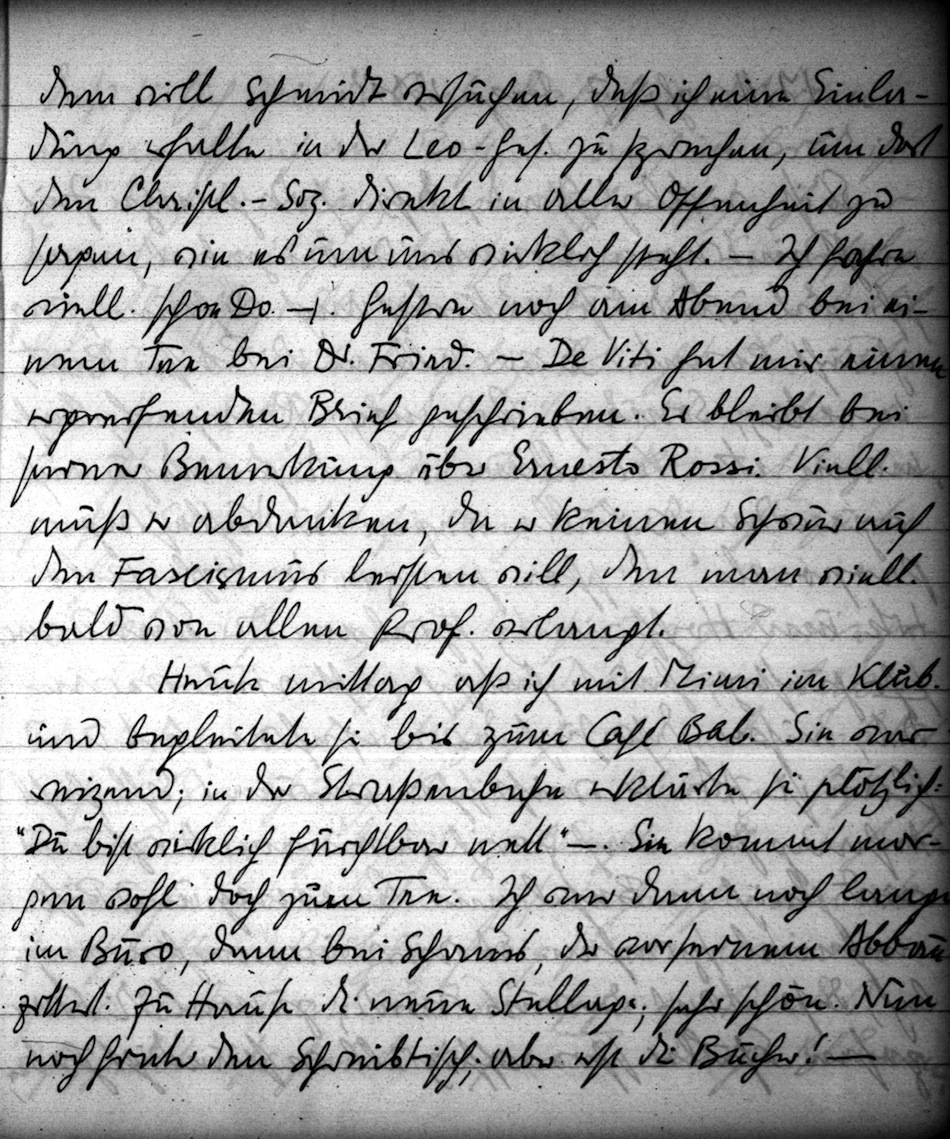 dann will Schmidt versuchen, daß ich eine Einla-
dung erhalte in der Leo-Ges. zu sprechen, um dort
den Christl.-Soz. direkt in aller Offenheit zu
sagen, wie es um uns wirklich steht. — Ich fahre
viell. schon Do. —. Gestern noch am Abend bei ei-
nem Tee bei Dr. Fried. — De Viti hat mir einen
ergreifenden Brief geschrieben. Er bleibt bei
seiner Bemerkung über Ernesto Rossi. Viell.
muß er abdanken, da er keinen Schwur auf
den Fascismus leisten will, den man viell.
bald von allen Prof. verlangt.
Heute mittag aß ich mit Mimi im Klub.
und begleitete sie bis zum Café Bab. Sie war
reizend; in der Straßenbahn erklärte sie plötzlich:
"Du bist wirklich furchtbar nett" —. Sie kommt mor-
gen wohl doch zum Tee. Ich war dann noch lange
im Büro, dann bei Schams, der vor seinem Abbau
zittert. Zu Hause d. neue Stellage; sehr schön. Nun
noch heute den Schreibtisch; aber erst die Bücher! —